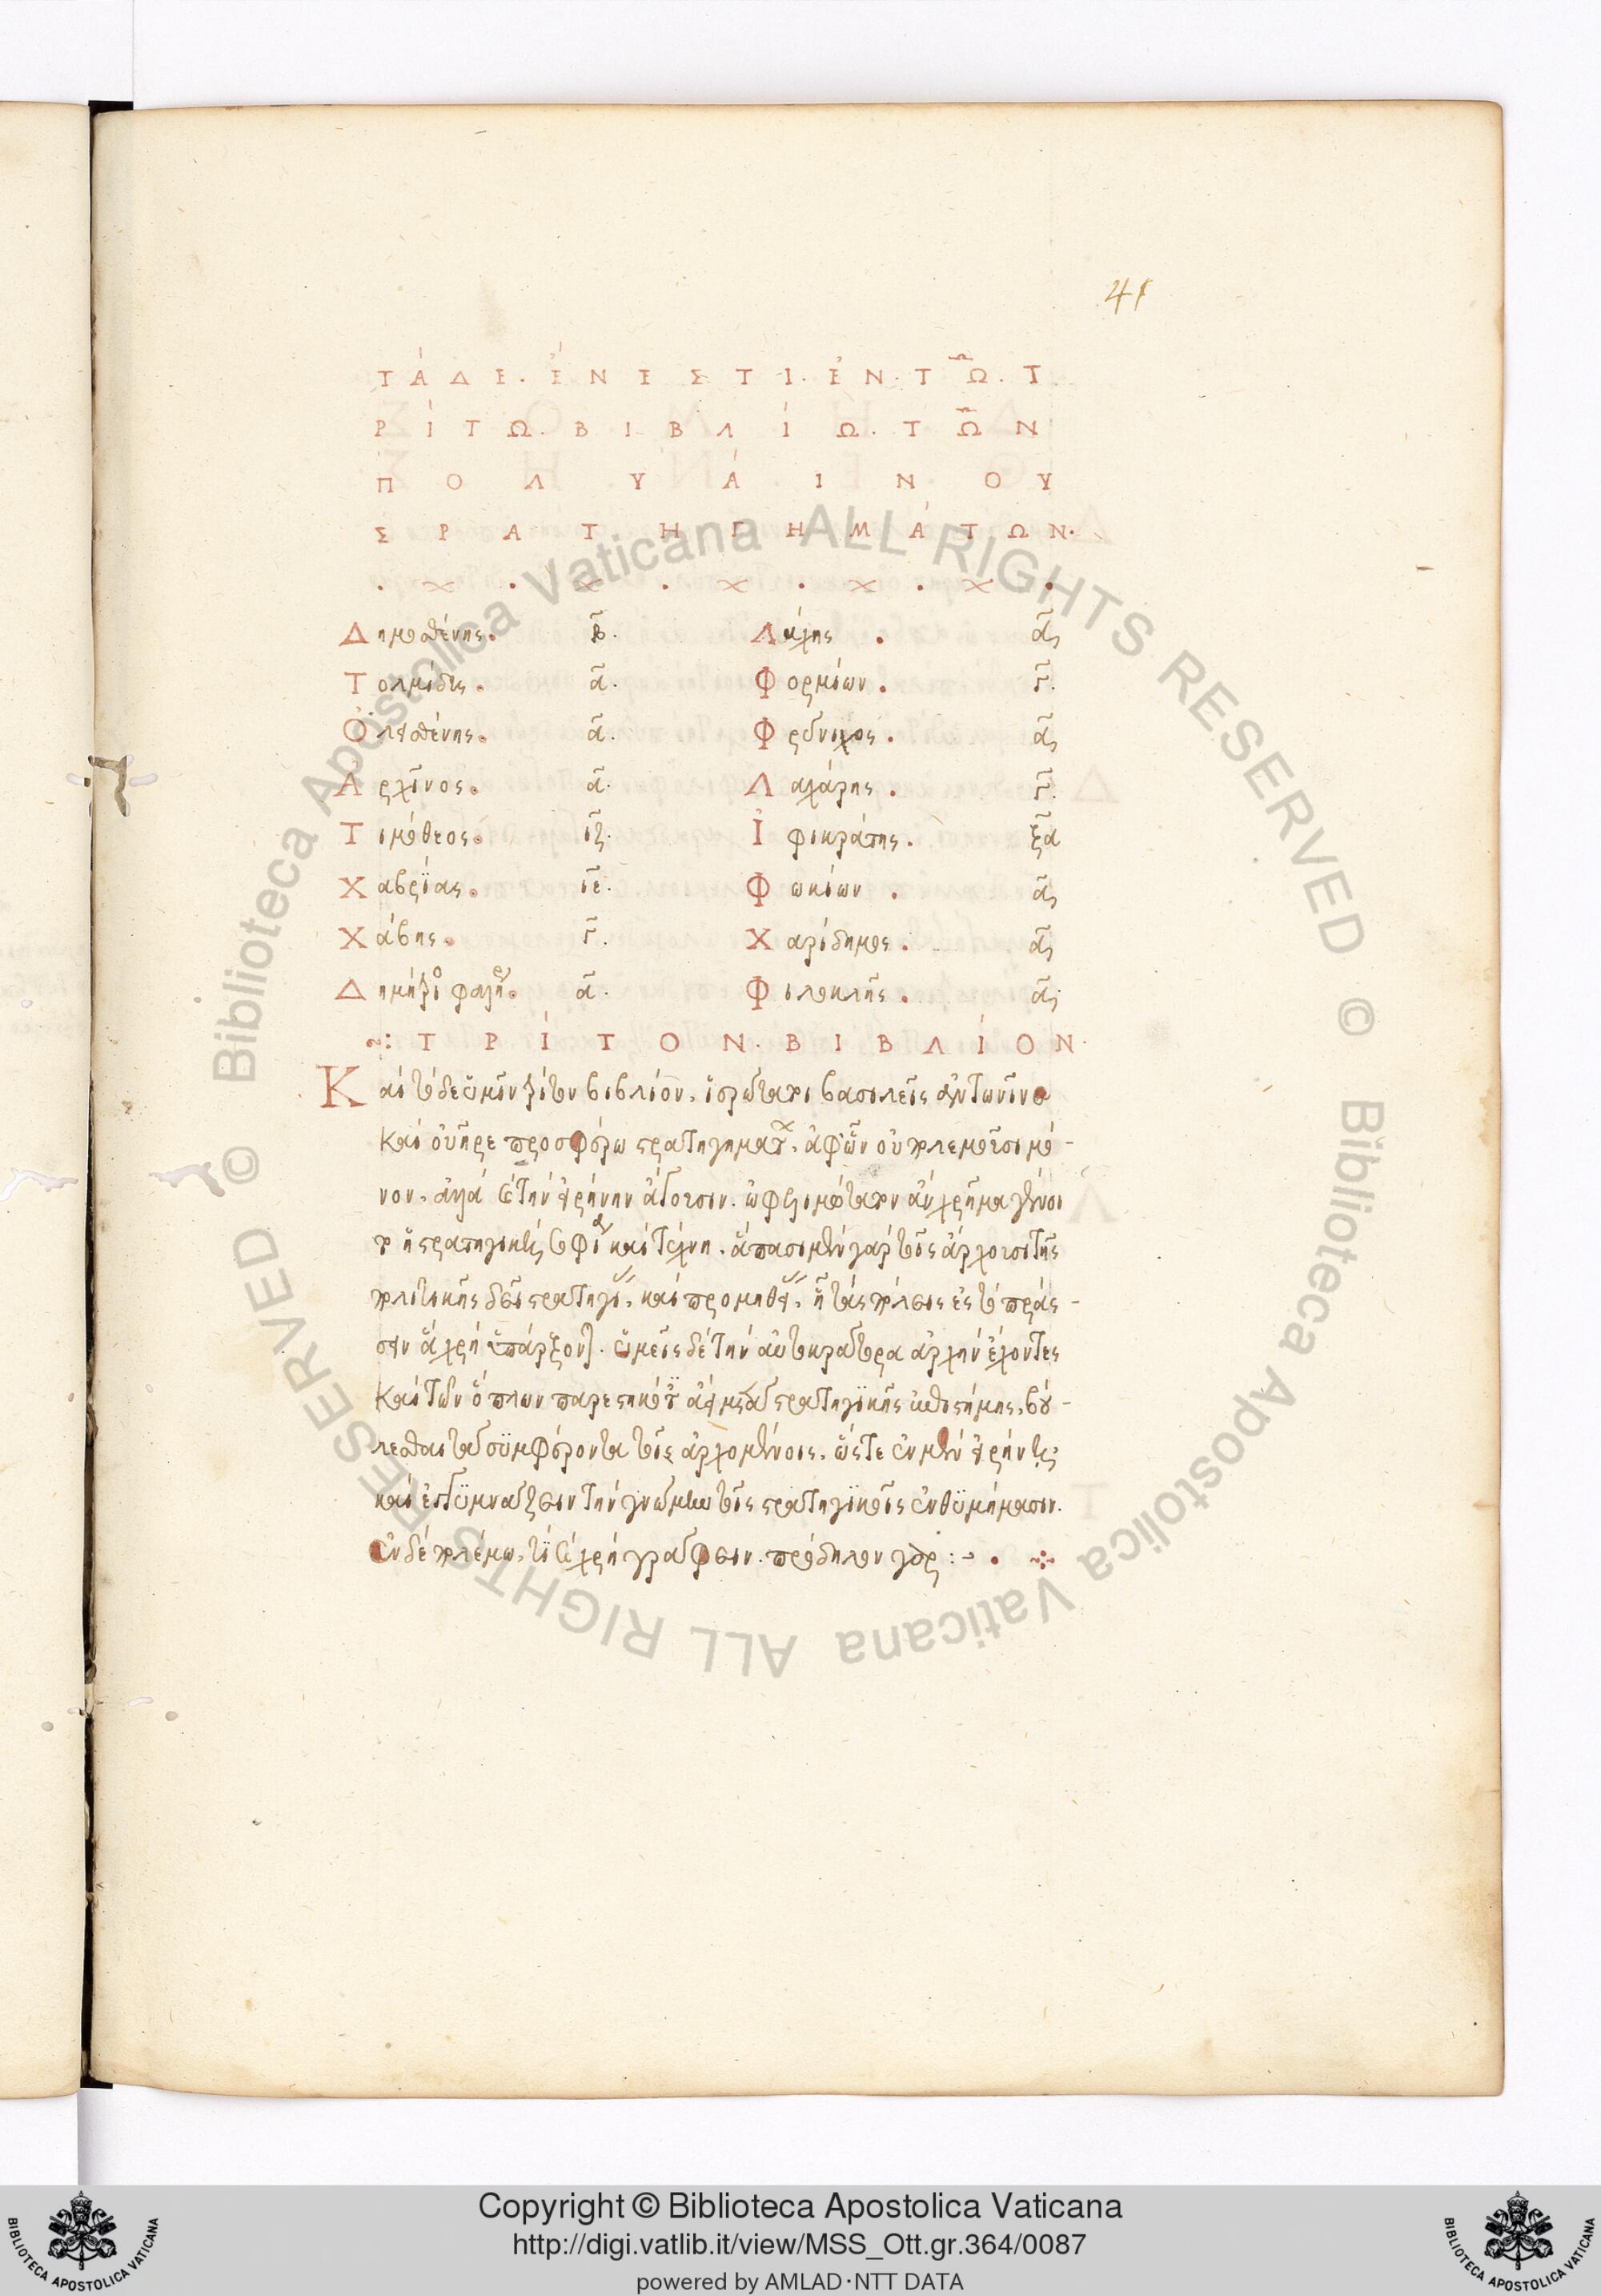 41
ΤΆΔΕ. ἘΝΕΣΤΙ. ἘΝ. ΤΩ͂. Τ
ΡΊΤΩ. ΒΙΒΛΊΩ. ΤΩ͂Ν
ΠΟΛΥΆΙΝΟΥ
ΣΡΑΤΗΓΗΜΆΤΩΝ.
Δημοσθένης. β. Λάχης. α
Τολμίδης. α. Φορμίων. γ.
Ὀλυσθένης. α. Φρύνιχος. α
Αρχῖνος. α. Λαχάρης. γ.
Τιμόθεος. ιζ. Ἰφικράτης. ξα
Χαβρίας. ιε. Φωκίων. α
Χάβης. γ. Χαρίδημος. α
Δημήτριος φαληρεύς. α. Φιλοκλῆς. α
ΤΡΊΤΟΝ. ΒΙΒΛΊΟΝ.
Καὶ τόδε ὑμῖν τρίτον βιβλίον, ἱερώτατοι βασιλεῖς ἀντωνῖνε
καὶ οὐῆρε προσφέρω στρατηγημάτων, ἀφ' ὧν οὐ πολεμοῦσι μό-
νον, ἀλλὰ καὶ τὴν εἰρήνην ἄγουσιν. ὠφελιμώτατον ἂν χρῆμα γένοι
το ἡ στρατηγικῆς σοφία καὶ τέχνη. ἅπασι μὲν γὰρ τοῖς ἄρχουσι τῆς
πολιτικῆς δεῖ στρατηγίας, καὶ προμηθείας, ἢ τὰς πόλεις ἐς τὸ πράσ-
σειν ἃ χρὴ ὑπάρξονται. ὑμεῖς δὲ τὴν αὐτοκράτορα ἀρχὴν ἔχοντες
καὶ τῶν ὅπλων παρεστηκότων στρατηγικῆς ἐπιστήμης, βού-
λεσθαι τὰ συμφέροντα τοῖς ἀρχομένοις, ὥστε ἐν μὲν εἰρήνῃ
καὶ ἐγγυμνάζειν τὴν γνώμην τοῖς στρατηγικοῖς ἐνθυμήμασιν.
ἐν δὲ πολέμῳ, τί καὶ χρὴ γράφειν. πρόδηλον γὰρ :-
Copyright © Biblioteca Apostolica Vaticana
http://digi.vatlib.it/view/MSS_Ott.gr.364/0087
powered by AMLAD·NTT DATA
BIBLIOTECA APOSTOLICA VATICANA
BIBLIOTECA APOSTOLICA VATICANA
© Biblioteca Apostolica Vaticana ALL RIGHTS RESERVED
© Biblioteca Apostolica Vaticana ALL RIGHTS RESERVED